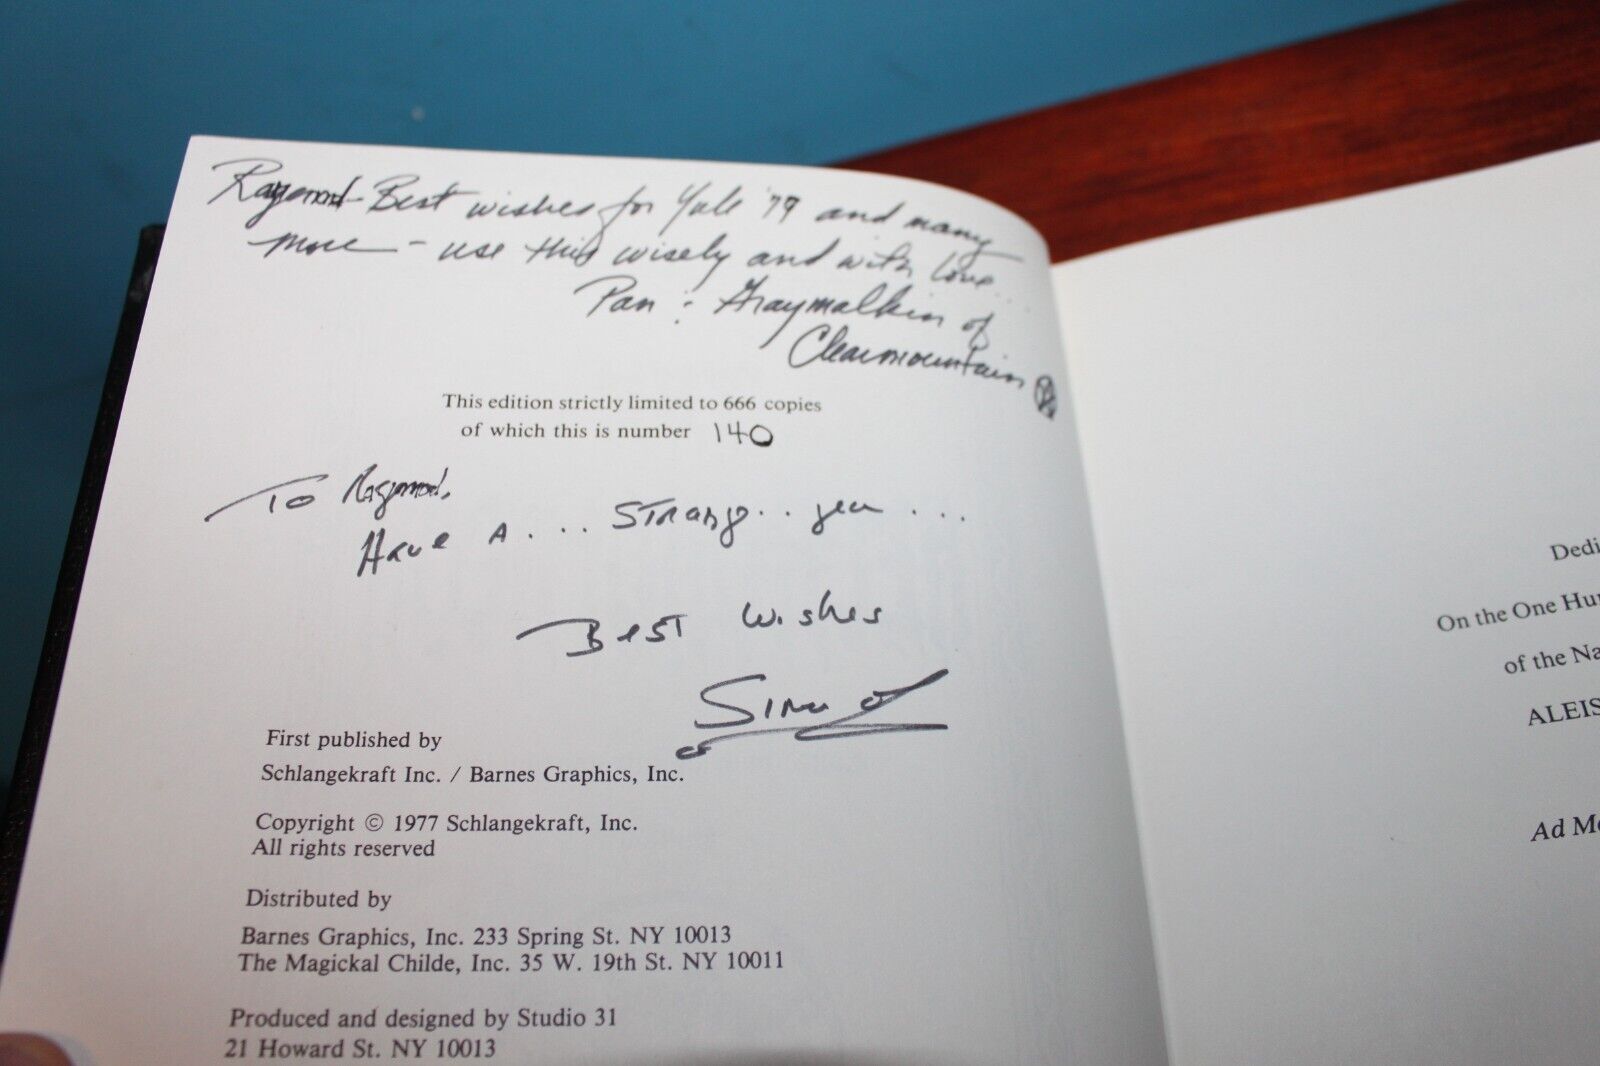 Raymond - Best wishes for Yule '79 and many
more - use this wisely and with love...
Pan: Graymalkin of
Clearmountain
This edition strictly limited to 666 copies
of which this is number 140
To Raymond,
Have A.... Strang.. yea ...
Best Wishes
First published by
Schlangekraft Inc. / Barnes Graphics, Inc.
Copyright © 1977 Schlangekraft, Inc.
All rights reserved
Distributed by
Barnes Graphics, Inc. 233 Spring St. NY 10013
The Magickal Childe, Inc. 35 W. 19th St. NY 10011
Produced and designed by Studio 31
21 Howard St. NY 10013
Dedi
On the One Hu
of the Na
ALEIS
Ad M